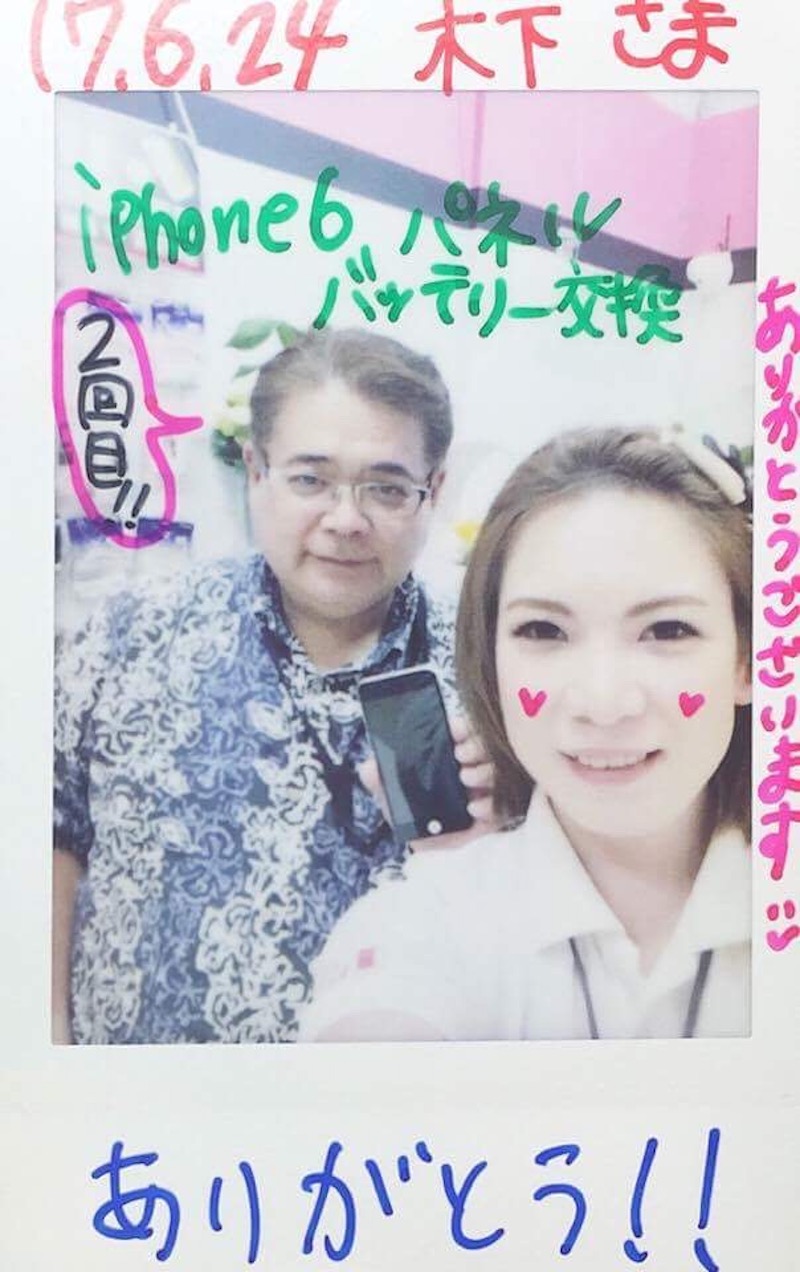 17.6.24 木下さま
iphone6 パネル
バッテリー交換
2回目!!
ありがとうございます
ありがとう!!